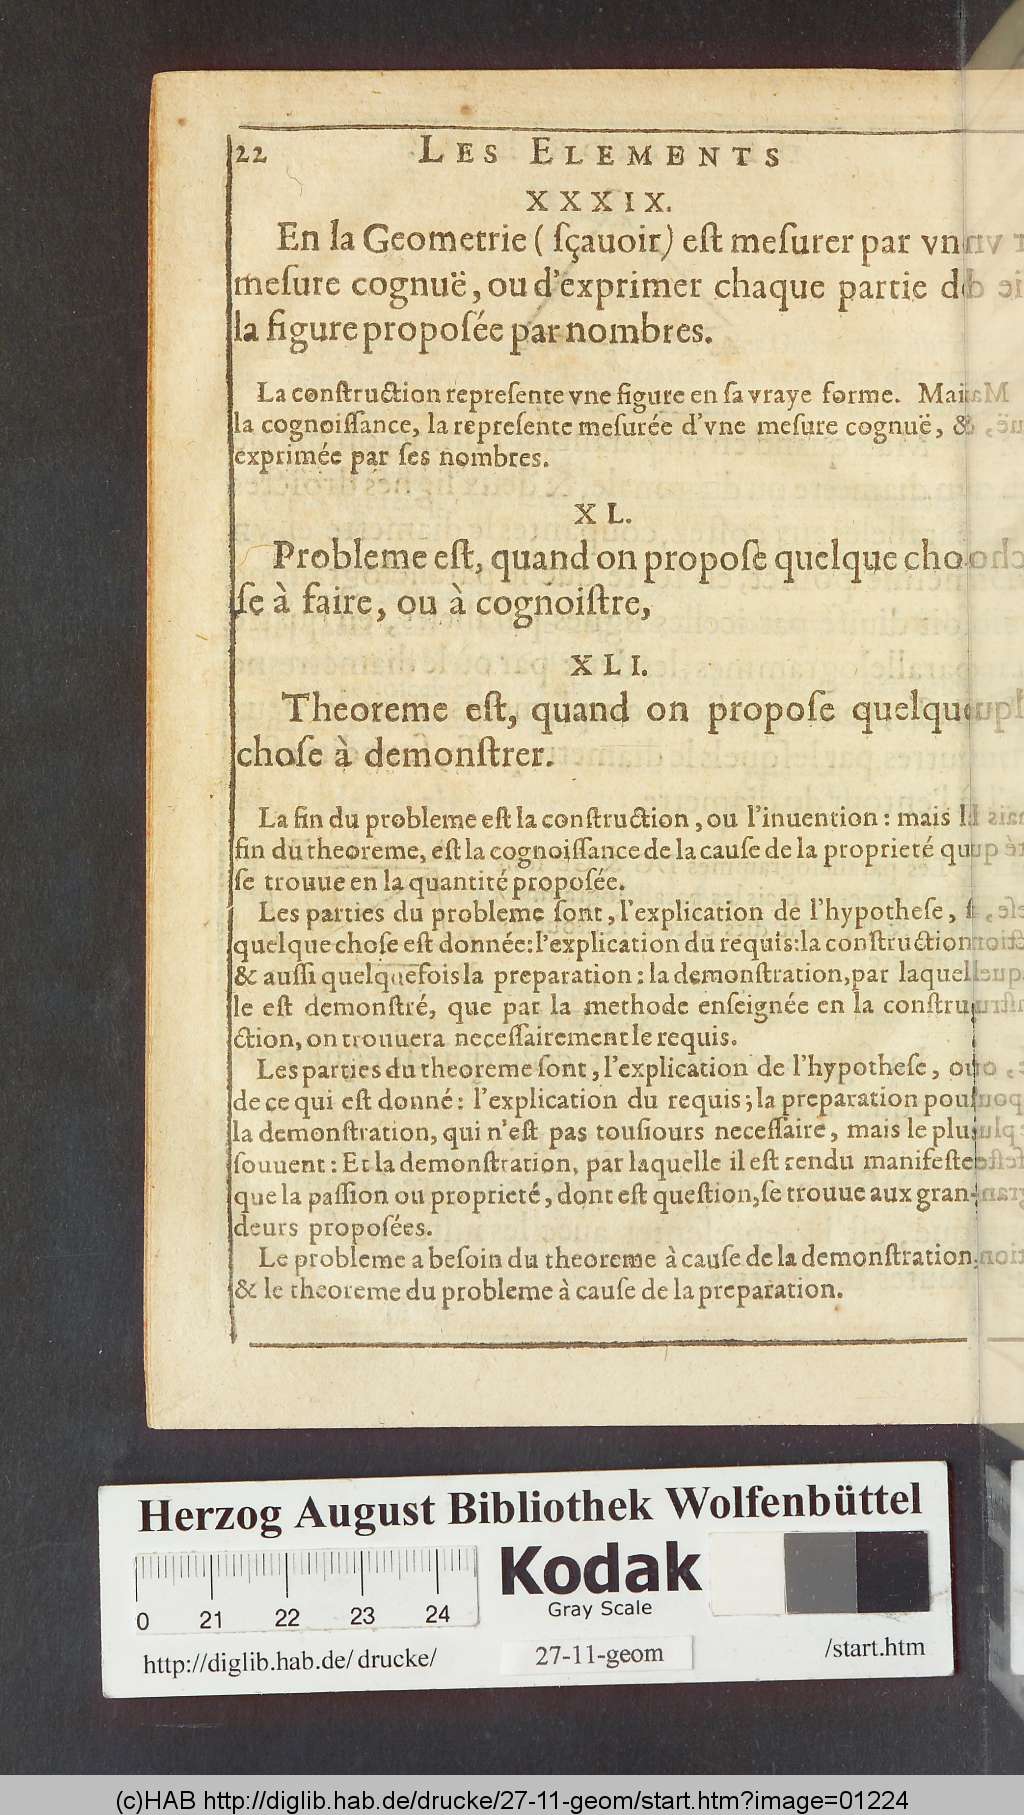 22 LES ELEMENTS
XXXIX.
En la Geometrie (sçauoir) est mesurer par vn
mesure cognuë, ou d'exprimer chaque partie d
la figure proposée par nombres.
La construction represente vne figure en sa vraye forme. Mais
la cognoissance, la represente mesurée d'vne mesure cognuë, &
exprimée par ses nombres.
XL.
Probleme est, quand on propose quelque cho
se à faire, ou à cognoistre,
XLI.
Theoreme est, quand on propose quelque
chose à demonstrer.
La fin du probleme est la construction, ou l'inuention: mais l
fin du theoreme, est la cognoissance de la cause de la proprieté qu
se trouue en la quantité proposée.
Les parties du probleme sont, l'explication de l'hypothese,
quelque chose est donnée: l'explication du requis: la construction
& aussi quelquefois la preparation: la demonstration, par laquel
le est demonstré, que par la methode enseignée en la constru
ction, on trouuera necessairement le requis.
Les parties du theoreme sont, l'explication de l'hypothese, ou
de ce qui est donné: l'explication du requis; la preparation pour
la demonstration, qui n'est pas tousiours necessaire, mais le plus
souuent: Et la demonstration, par laquelle il est rendu manifeste
que la passion ou proprieté, dont est question, se trouue aux gran-
deurs proposées.
Le probleme a besoin du theoreme à cause de la demonstration,
& le theoreme du probleme à cause de la preparation.
Herzog August Bibliothek Wolfenbüttel
0 21 22 23 24
Kodak
Gray Scale
http://diglib.hab.de/ drucke/ 27-11-geom /start.htm
(c)HAB http://diglib.hab.de/drucke/27-11-geom/start.htm?image=01224